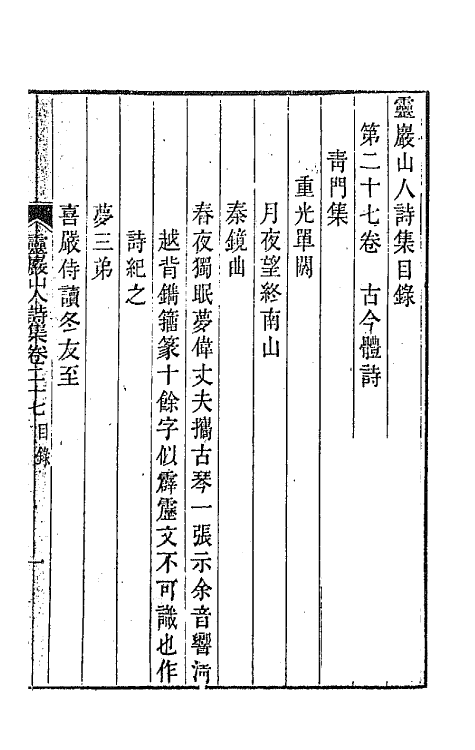 靈巖山人詩集目錄
第二十七卷　古今體詩
青門集
重光單閼
月夜望終南山
秦鏡曲
春夜獨眠夢偉丈夫攜古琴一張示余音響清
越背鐫籀篆十餘字似霹靂文不可識也作
詩紀之
夢三弟
喜嚴侍讀冬友至
靈巖山人詩集卷二十七　目錄　一